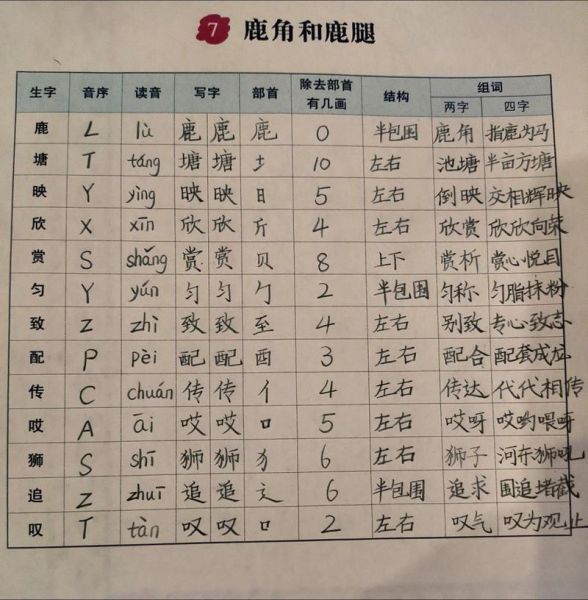 7 鹿角和鹿腿
生字 音序 读音 写字 部首 除去部首有几画 结构 组词
两字 四字
鹿 L lù 鹿 鹿 鹿 0 半包围 鹿角 指鹿为马
塘 T táng 塘 塘 土 10 左右 池塘 半亩方塘
映 Y yìng 映 映 日 5 左右 倒映 交相辉映
欣 X xīn 欣 欣 斤 4 左右 欣赏 欣欣向荣
赏 S shǎng 赏 赏 贝 8 上下 赏析 赏心悦目
匀 Y yún 匀 匀 勹 2 半包围 匀称 匀脂抹粉
致 Z zhì 致 致 至 4 左右 别致 专心致志
配 P pèi 配 配 酉 3 左右 配合 配套成龙
传 C chuán 传 传 亻 4 左右 传达 代代相传
哎 A āi 哎 哎 口 5 左右 哎呀 哎哟喂呀
狮 S shī 狮 狮 犭 6 左右 狮子 河东狮吼
追 Z zhuī 追 追 辶 6 半包围 追求 围追堵截
叹 T tàn 叹 叹 口 2 左右 叹气 叹为观止